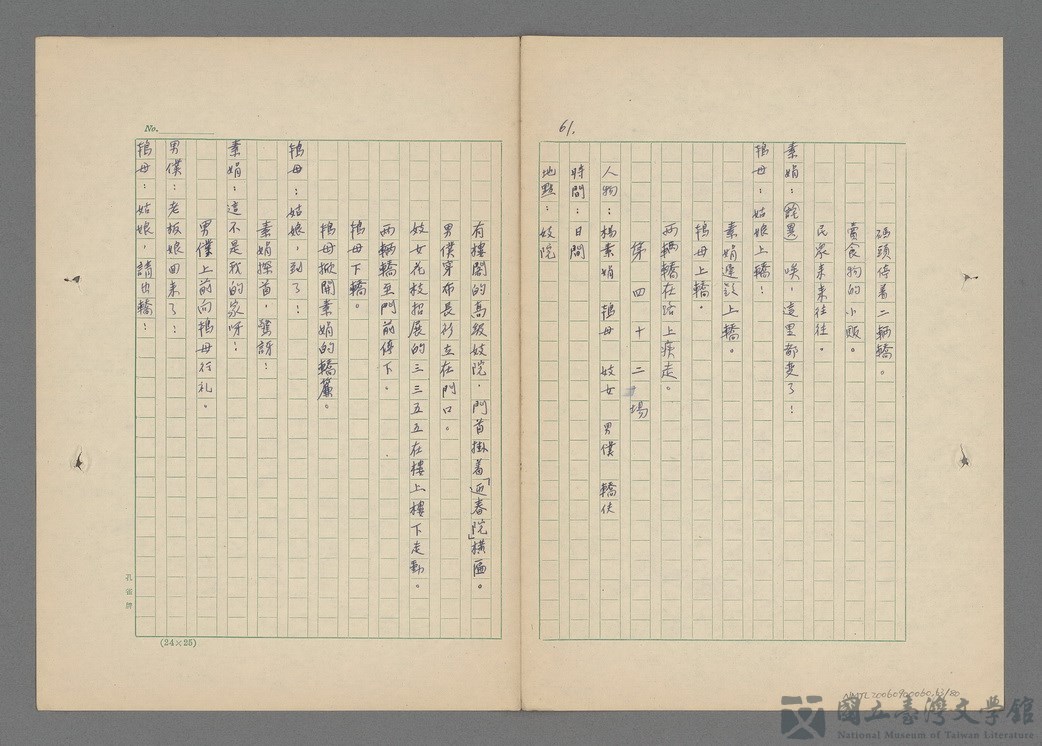 61.
碼頭停着二輛轎。
賣食物的小販。
民眾來來往往。
素娟：(詫異)唉，這里都變了！
鴇母：姑娘上轎！
素娟進彩上轎。
鴇母上轎。
兩輛轎在路上疾走。
第四十二場
人物：楊素娟 鴇母 妓女 男僕 轎伕
時間：日間
地點：妓院
有樓閣的高級妓院，門首掛着「迎春院」橫匾。
男僕穿布長衫立在門口。
妓女花枝招展的三三五五在樓上樓下走動。
兩輛轎至門前停下。
鴇母下轎。
鴇母掀開素娟的轎簾。
鴇母：姑娘，到了！
素娟探首，驚訝！
素娟：這不是我的家呀！
男僕上前向鴇母行礼。
男僕：老板娘回來了！
鴇母：姑娘，請出轎！
No.
(24×25)
孔雀牌
NMTL20060900060.63/80
國立臺灣文學館
National Museum of Taiwan Literature